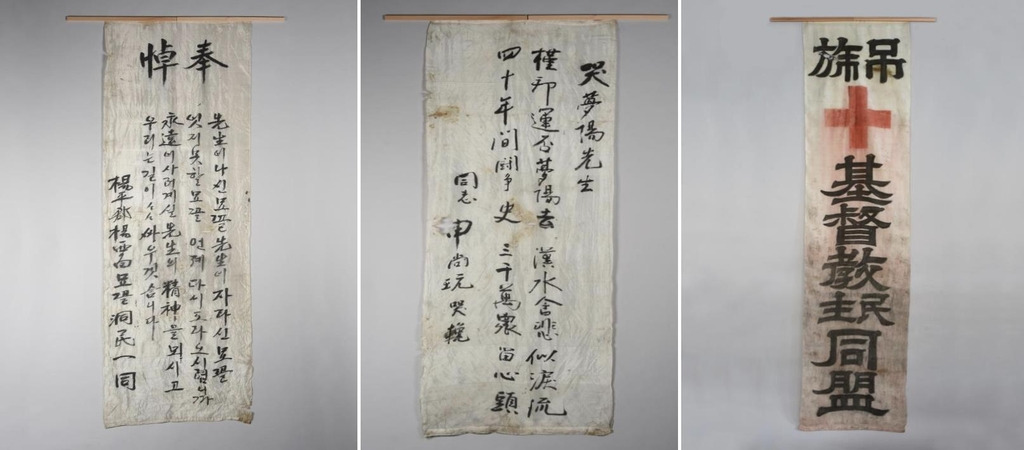 奉悼
先生이나신묘골 先生이자라신묘골
잇지못할묘골 언제다시도라오시렵니까
永遠이사러계신先生의精神을뫼시고
우리는길이 싸우겟습니다
楊平郡楊西面묘골洞民一同
哭夢陽先生
槿邦運否夢陽去 漢水含悲似淚流
四十年间鬪争史 三千萬衆留心頭
同志 申尚玩 哭輓
吊旗
基督教民主同盟